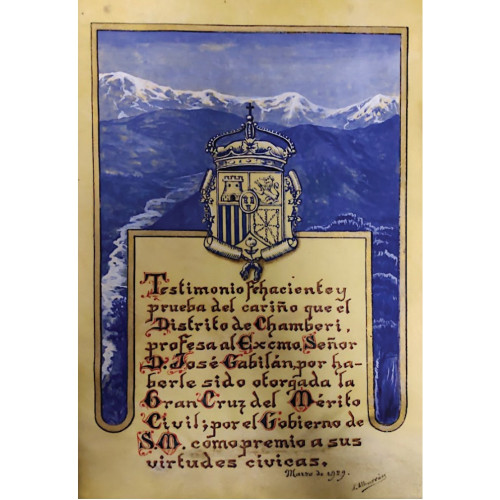 Testimonio fehaciente y
prueba del cariño que el
Distrito de Chamberi,
profesa al Excmo, Señor
D. José Gabilán, por ha-
berle sido otorgada la
Gran Cruz del Mérito
Civil; por el Gobierno de
S.M. como premio a sus
virtudes civicas.
Marzo de 1929.